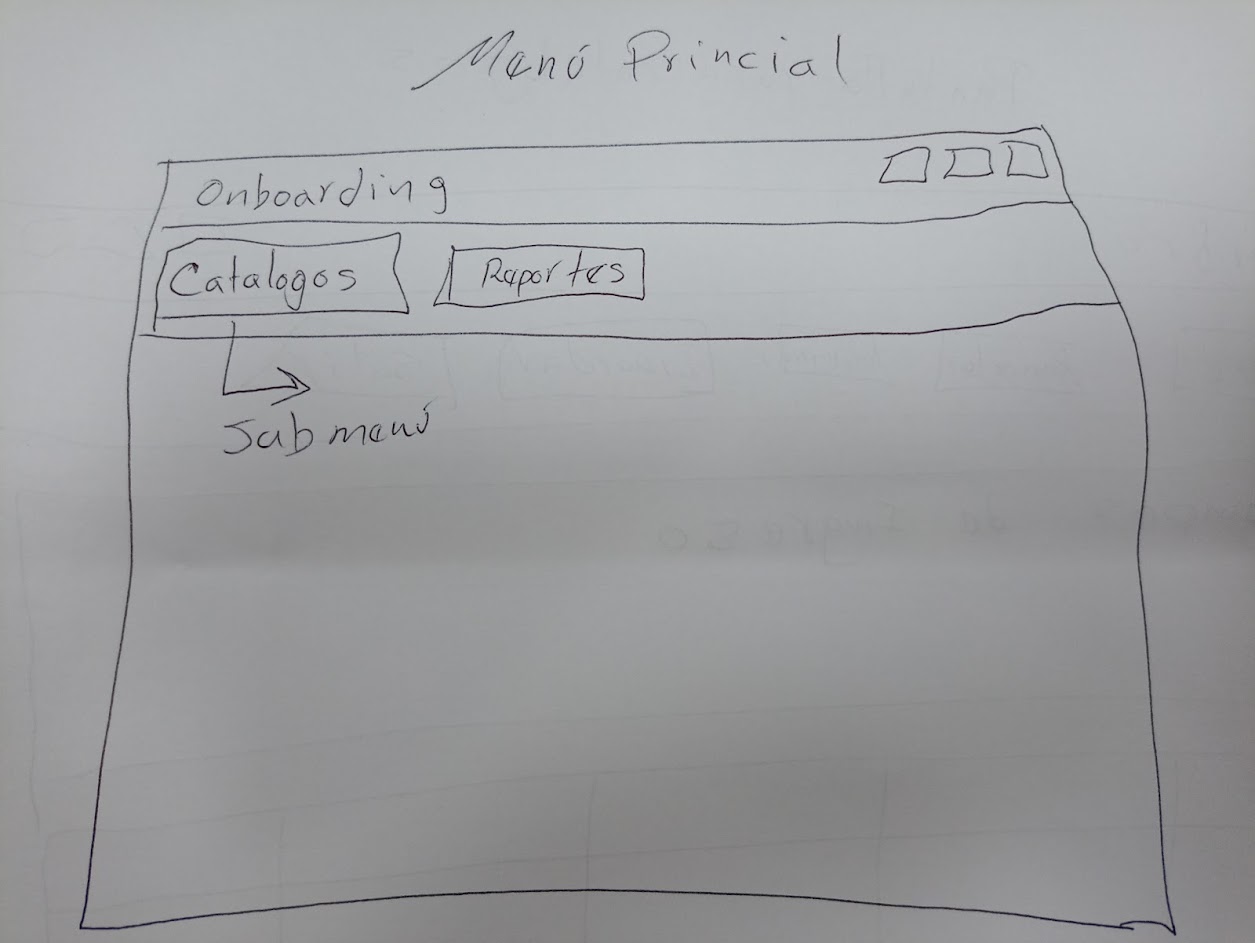 Menú Princial
Onboarding
Catalogos Reportes
Submenú